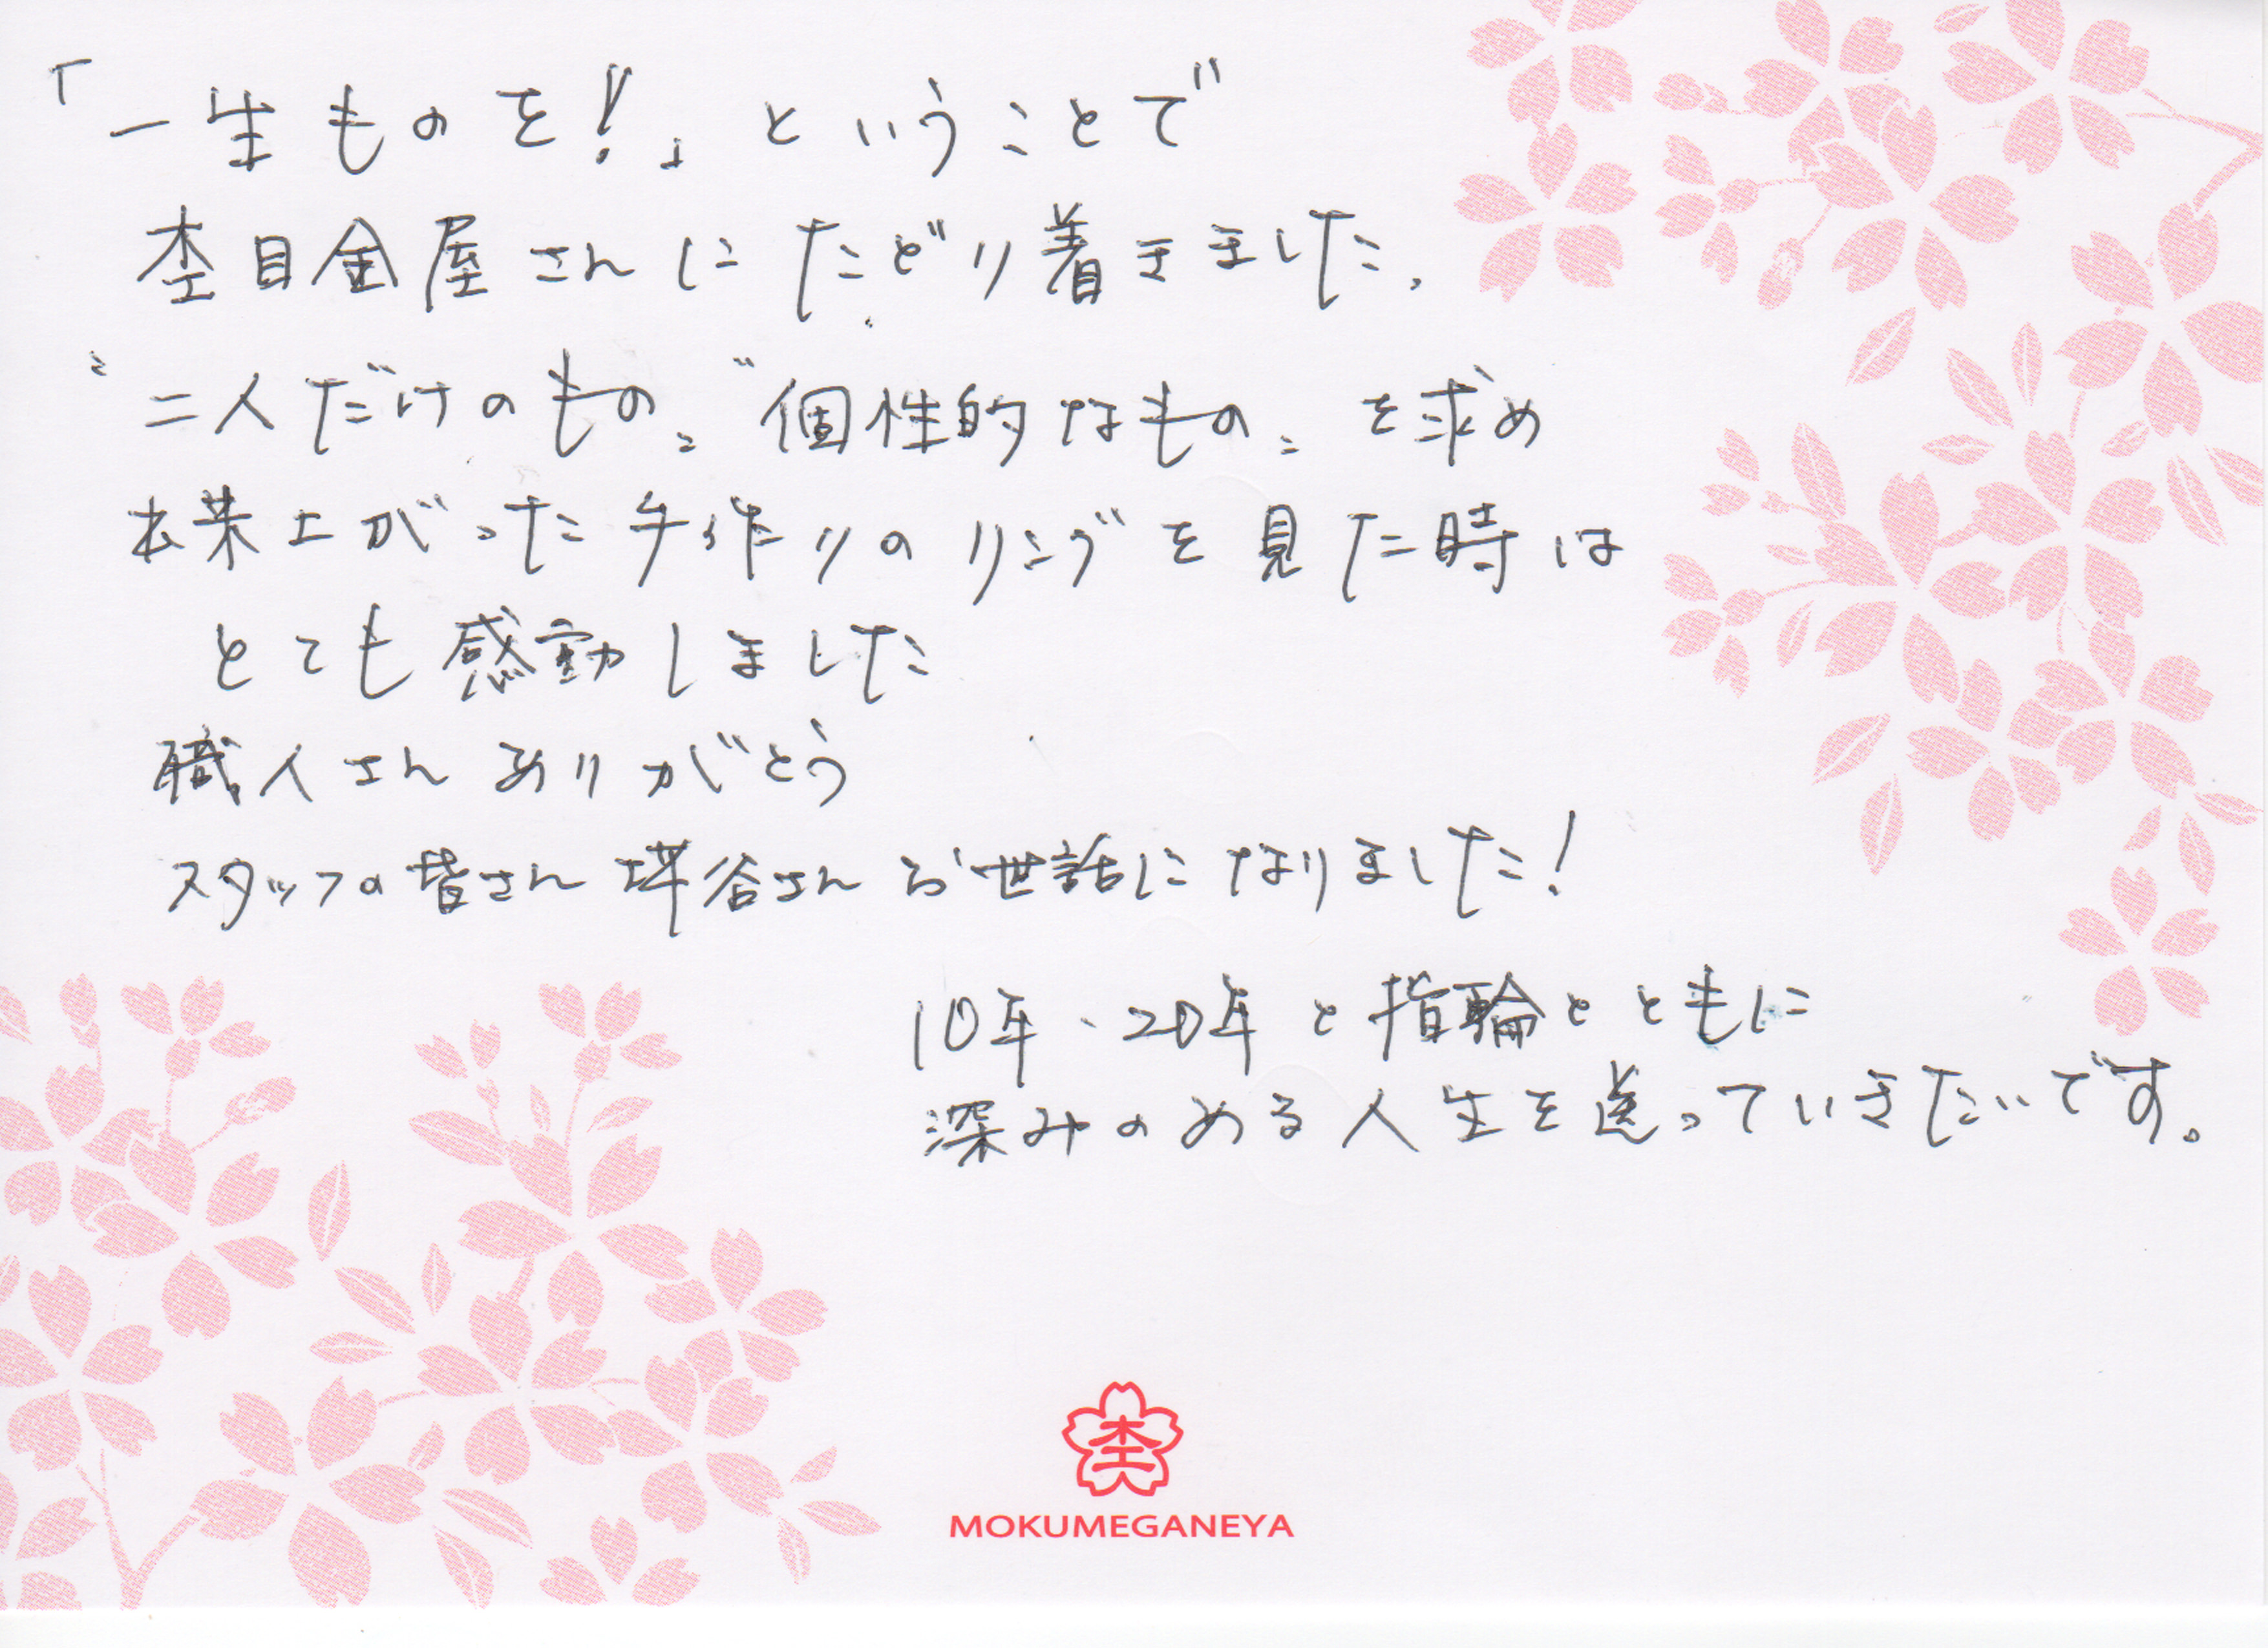 「一生ものを!」ということで
杢目金屋さんにたどり着きました。
〝二人だけのもの〟〝個性的なもの〟を求め
出来上がった手作りのリングを見た時は
とても感動しました
職人さんありがとう
スタッフの皆さん 坪谷さん お世話になりました!
10年、20年と指輪とともに
深みのある人生を送っていきたいです。
杢
MOKUMEGANEYA